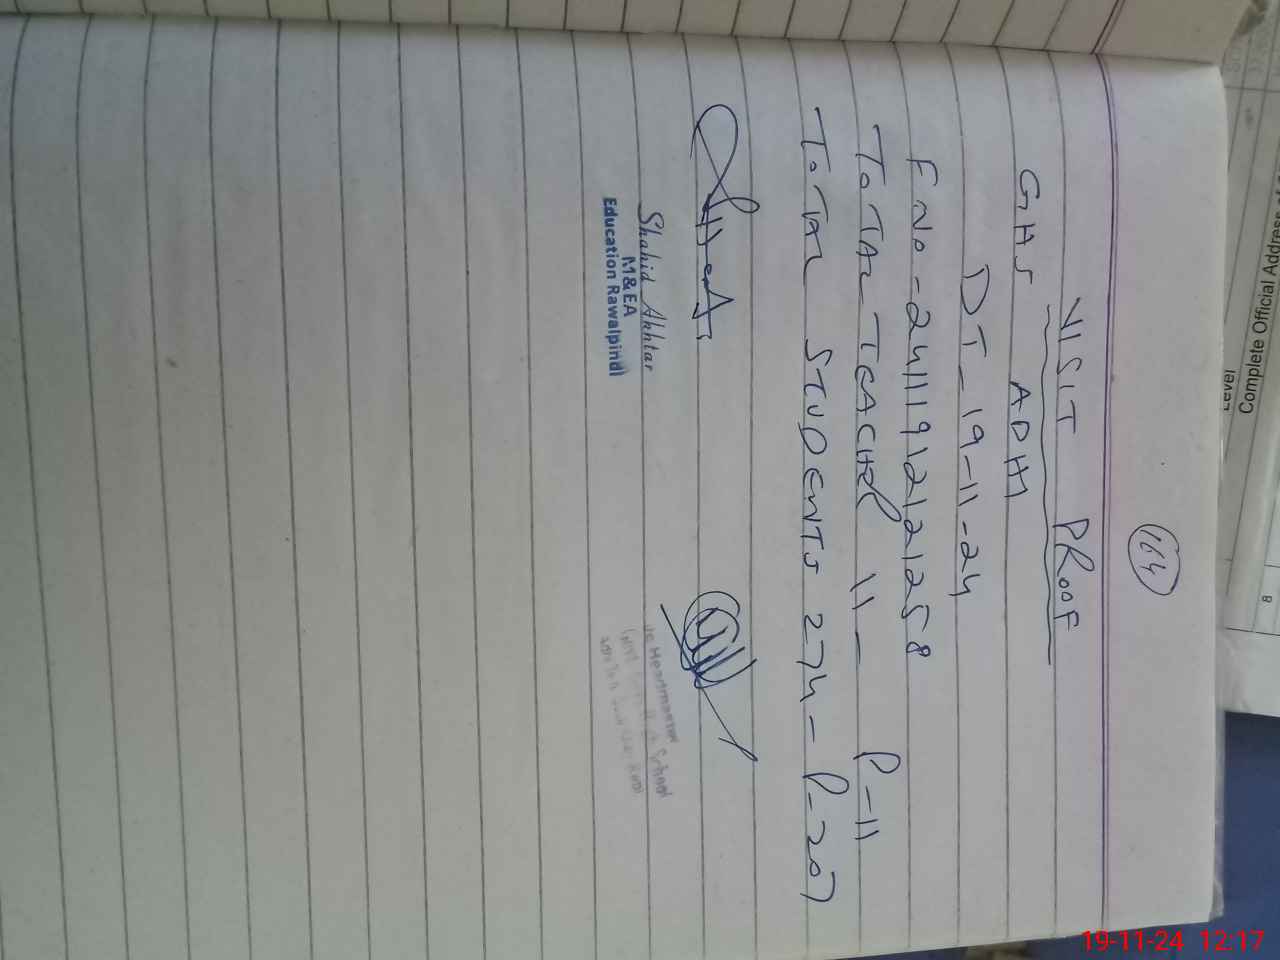 164
VISIT PROOF
GHS ADHI
DT-19-11-24
F No-24111912121258
TOTAL TEACHER 11- P-11
TOTAL STUDENTS 274-P-207
Shahid Akhtar
M&EA
Education Rawalpindi
Headmaster
High School
Level
Complete Official Address
8
19-11-24 12:17